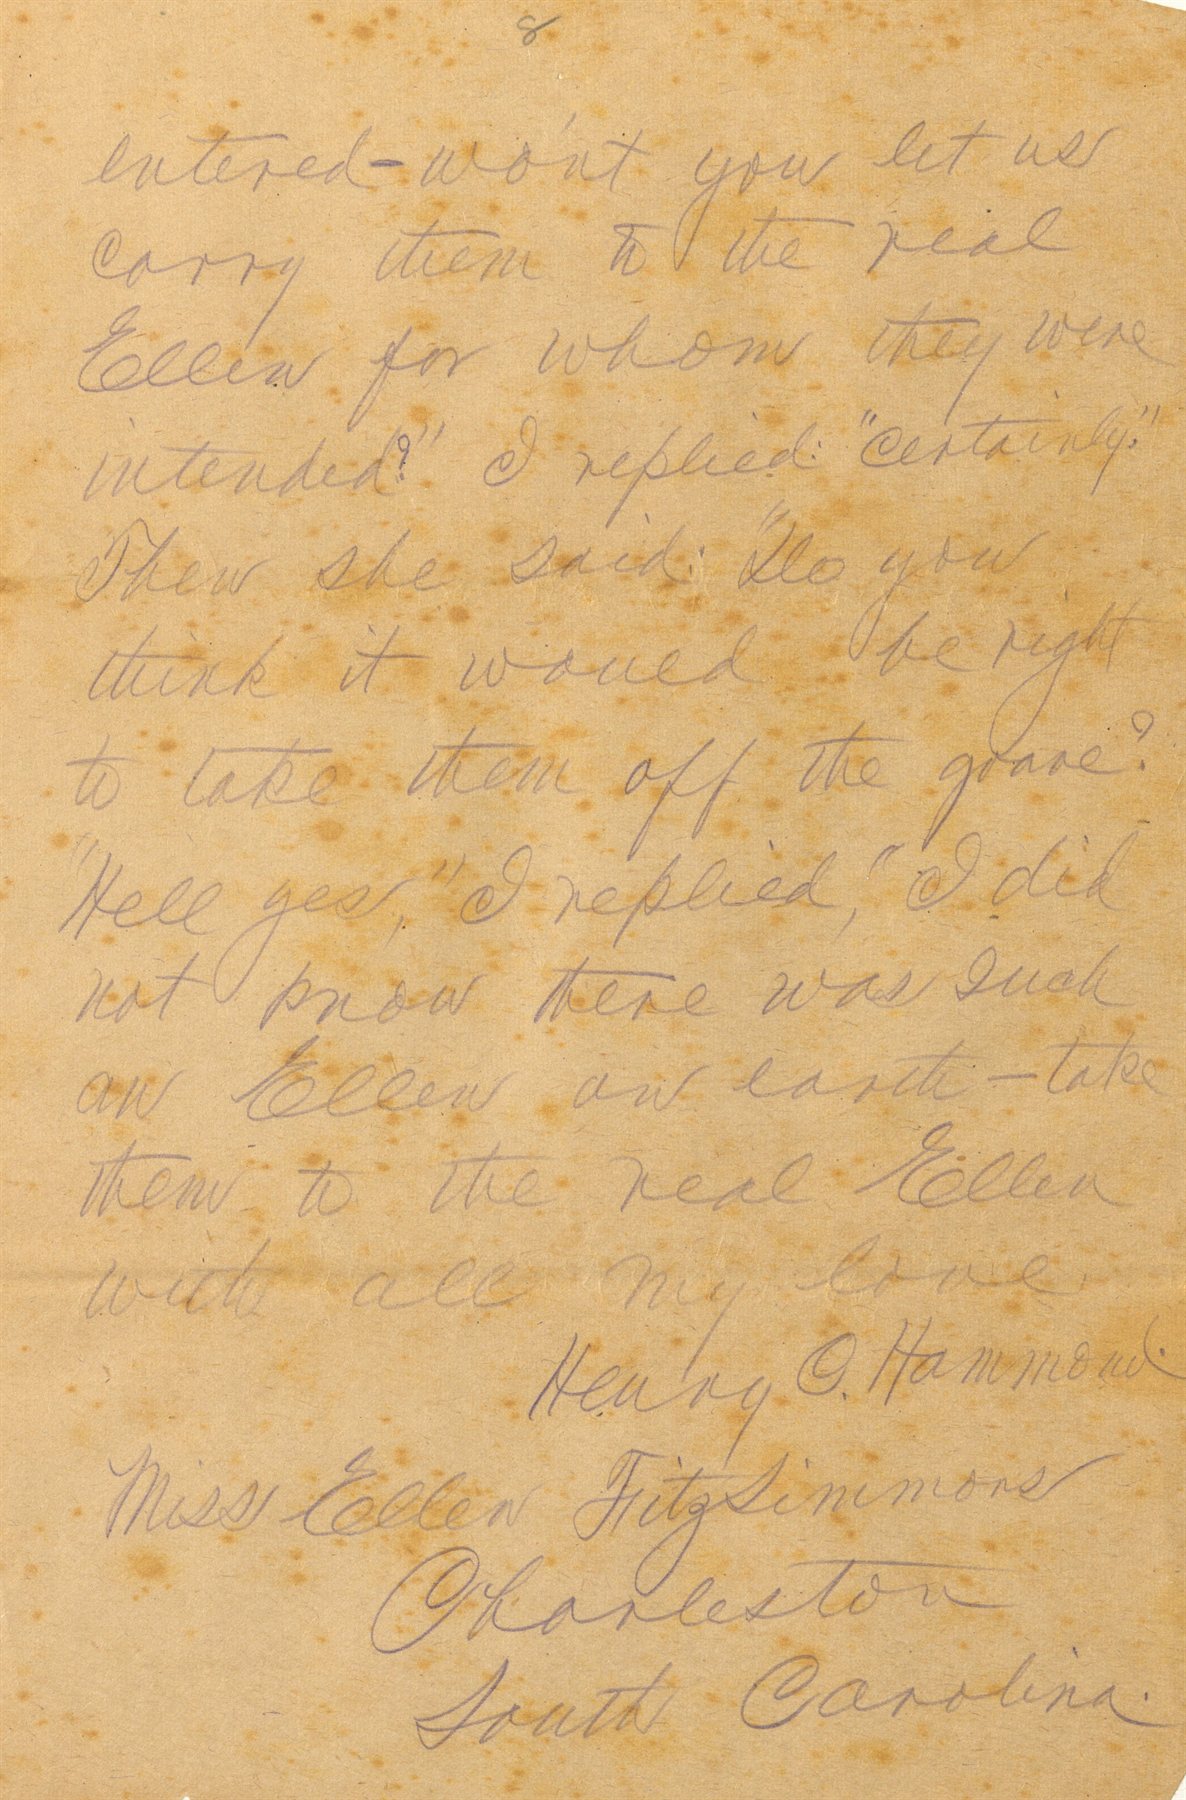 8
entered - won't you let us
carry them to the real
Ellen for whom they were
intended?" I replied: "certainly."
Then she said: "Do you
think it would be right
to take them off the grave?
"Hell yes," I replied, "I did
not know there was such
an Ellen on earth - take
them to the real Ellen
with all my love.
Henry C. Hammond.
Miss Ellen FitzSimmons
Charleston
South Carolina.